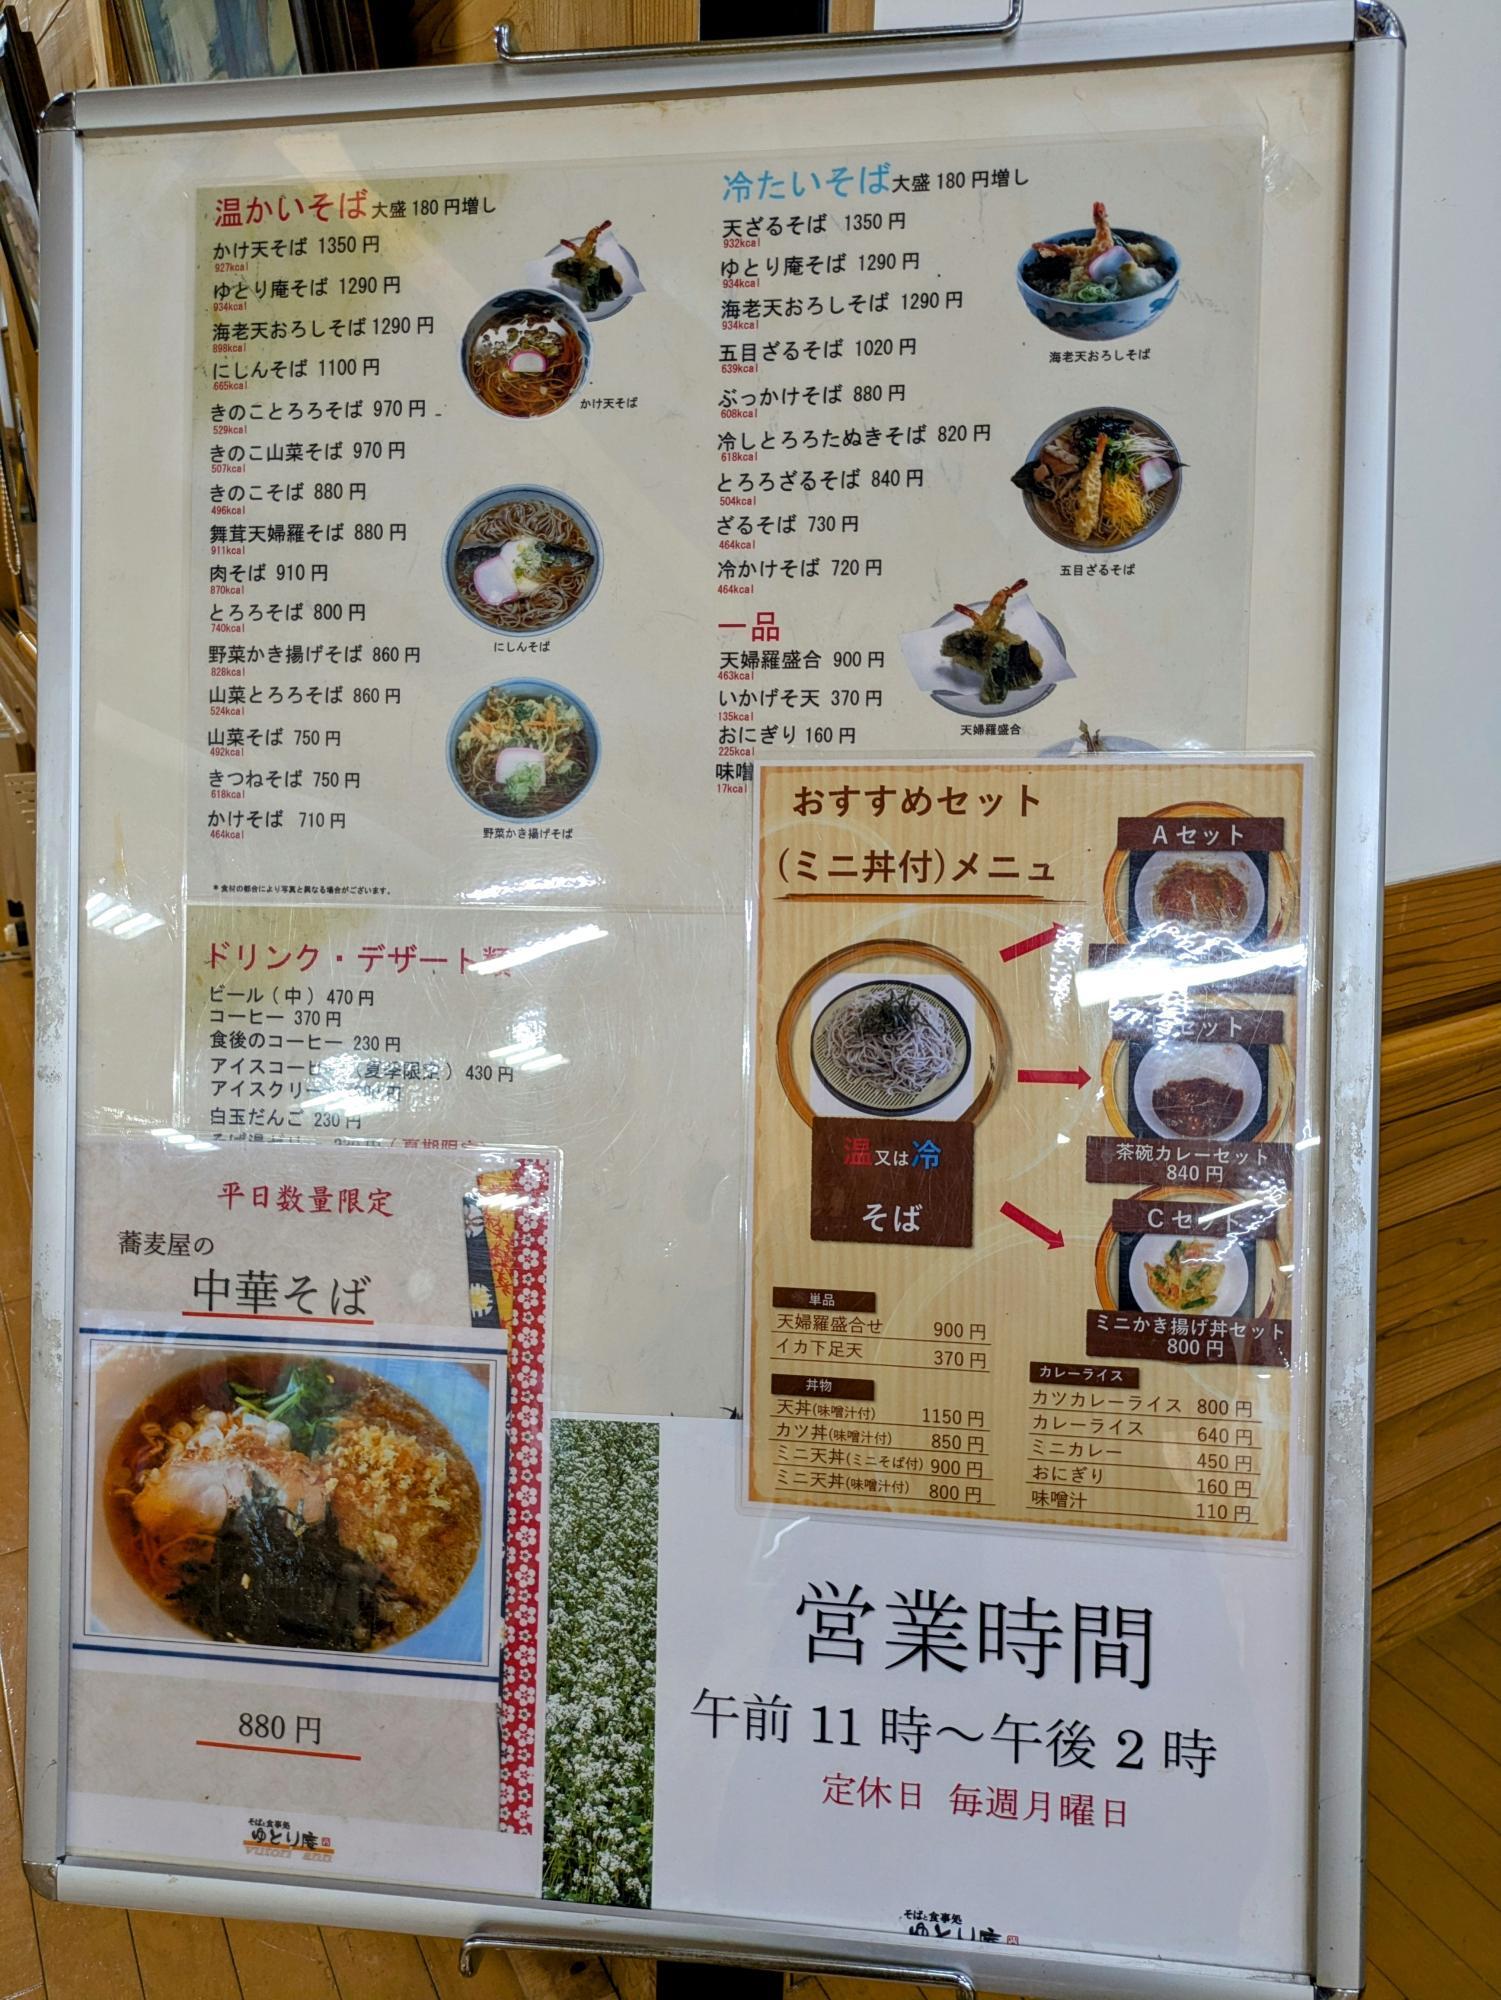 温かいそば 大盛180円増し
かけ天そば 1350円
927kcal
ゆとり庵そば 1290円
934kcal
海老天おろしそば 1290円
898kcal
にしんそば 1100円
665kcal
きのことろろそば 970円
529kcal
きのこ山菜そば 970円
507kcal
きのこそば 880円
496kcal
舞茸天婦羅そば 880円
911kcal
肉そば 910円
870kcal
とろろそば 800円
740kcal
野菜かき揚げそば 860円
828kcal
山菜とろろそば 860円
524kcal
山菜そば 750円
492kcal
きつねそば 750円
618kcal
かけそば 710円
464kcal
かけ天そば
にしんそば
野菜かき揚げそば
*食材の都合により写真と異なる場合がございます。
冷たいそば 大盛180円増し
天ざるそば 1350円
932kcal
ゆとり庵そば 1290円
934kcal
海老天おろしそば 1290円
934kcal
五目ざるそば 1020円
639kcal
ぶっかけそば 880円
608kcal
冷しとろろたぬきそば 820円
618kcal
とろろざるそば 840円
504kcal
ざるそば 730円
464kcal
冷かけそば 720円
464kcal
海老天おろしそば
五目ざるそば
一品
天婦羅盛合 900円
463kcal
いかげそ天 370円
135kcal
おにぎり 160円
225kcal
味噌
17kcal
天婦羅盛合
ドリンク・デザート類
ビール(中) 470円
コーヒー 370円
食後のコーヒー 230円
アイスコーヒー(夏季限定) 430円
アイスクリー
白玉だんご 230円
おすすめセット
(ミニ丼付)メニュ
Aセット
セット
茶碗カレーセット
840円
Cセット
ミニかき揚げ丼セット
800円
温又は冷
そば
単品
天婦羅盛合せ 900円
イカ下足天 370円
丼物
天丼(味噌汁付) 1150円
カツ丼(味噌汁付) 850円
ミニ天丼(ミニそば付) 900円
ミニ天丼(味噌汁付) 800円
カレーライス
カツカレーライス 800円
カレーライス 640円
ミニカレー 450円
おにぎり 160円
味噌汁 110円
平日数量限定
蕎麦屋の
中華そば
880円
そばと食事処
ゆとり庵
yutori ann
営業時間
午前11時～午後2時
定休日 毎週月曜日
そばと食事処
ゆとり庵